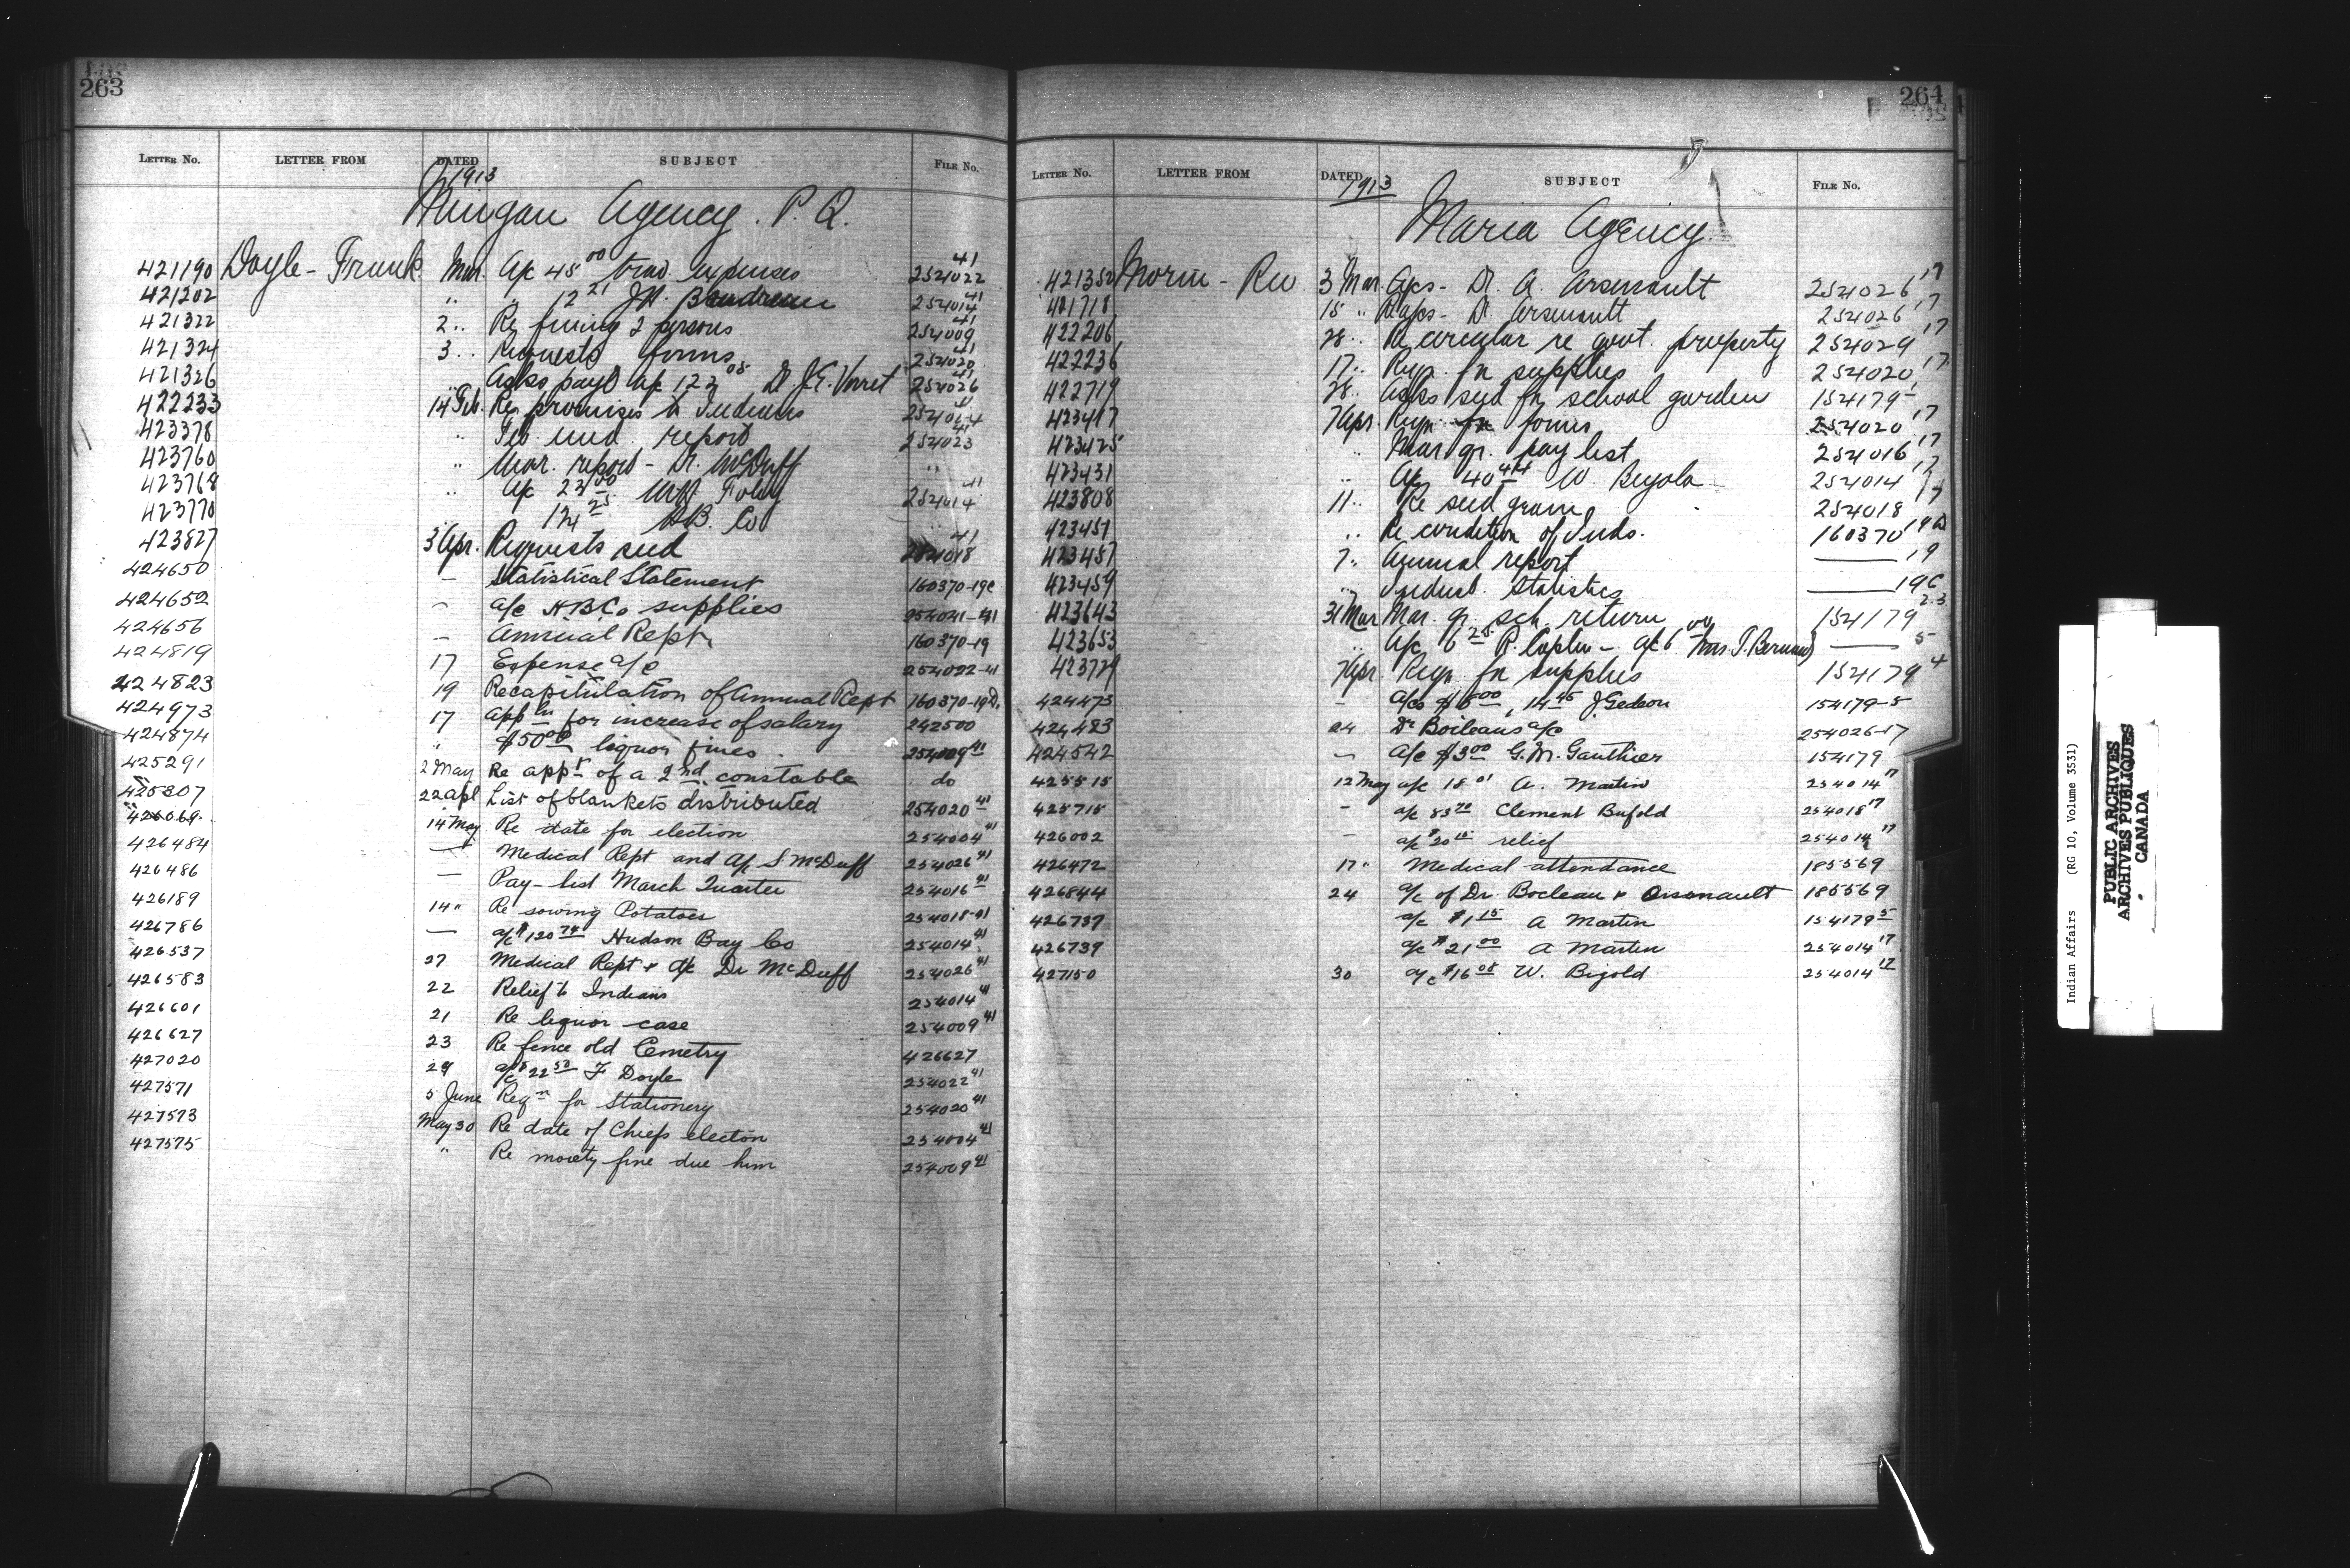 263
LETTER NO. LETTER FROM DATED SUBJECT FILE No.
1913
Mingan Agency. P.Q.
421190 Doyle - Frank Mar. A/c 45 00 trav. expenses 254022 41
421202 " " 12 21 J.P. 254014 41
421322 2 " Re fining 2 persons 254009 41
421324 3 " Requests forms 254020 41
421326 " Asks payt a/c 122 05 Dr. J.E. Verret 254026 41
422233 14 Feb. Re promises to Indians 41
423378 " Feb. med. report 254023 41
423760 " Mar. report - Dr. McDuff "
423768 " A/c 23 00 Foley 254014 41
423770 124 25 H.B. Co
423827 3 Apr. Requests seed 254018 41
424650 — Statistical Statement 160370-19c
424652 — a/c H B Co supplies 41
424656 — Annual Rept 160370-19
424819 17 Expense a/c 254022-41
424823 19 Recapitulation of Annual Rept 160370-19D.
424973 17 appln for increase of salary 242500
424874 " $50 00 liquor fines. 254009 41
425291 2 May Re appt of a 2nd constable do
425307 22 apl List of blankets distributed 254020 41
426069 14 May Re date for election 254004 41
426484 — Medical Rept and a/c S McDuff 254026 41
426486 — Pay-list March Quarter 254016 41
426189 14 " Re sowing Potatoes 254018-41
426786 — a/c $120 74 Hudson Bay Co 254014 41
426537 27 Medical Rept & a/c Dr McDuff 254026 41
426583 22 Relief to Indians 254014 41
426601 21 Re liquor case 254009 41
426627 23 Re fence old Cemetry 426627
427020 29 a/c $22 50 F Doyle 254022 41
427571 5 June Reqn for Stationery 254020 41
427573 May 30 Re date of Chiefs electon 254004 41
427575 " Re moiety fine due him 254009 41
264
LETTER No. LETTER FROM DATED SUBJECT FILE No.
1913
Maria Agency.
421352 Morin - Rev 3 Mar. A/cs - Dr. A. Arsenault 254026 17
421718 15 " Re a/cs - Dr Arsenault 254026 17
422206 28 " Re circular re govt. property 254029 17
422236 17 " Reqn. for supplies 254020 17
422719 28 " Asks seed for school garden 154179-
423417 7 Apr. Reqn for forms 254020 17
423425 " Mar qr. pay list 254016 17
423431 " A/c 40 44 W. 254014 17
423808 11 " Re seed grain 254018 17
423451 " Re condition of Inds. 160370 19D
423457 7 " Annual report —— 19
423459 " Indust. Statistics —— 19C
423643 31 Mar Mar. qr. sch. return 154179 2-3
423653 " A/c 6 25 P. Caplin - a/c 6 00 Mrs. T. Bernard —— 5
423729 7 Apr. Reqn. for supplies 154179 4
424473 — a/cs $ 5 00, 14 45 J Gedeon 154179-5
424483 24 Dr Boileaus a/c 254026-17
424542 — a/c $3 00 G. M. Gauthier 154179
425515 12 May a/c 18 01 A. Martin 254014 17
425715 — a/c 83 70 Clement Bufold 254018 17
426002 — a/c $20 15 relief 254014 17
426472 17 " Medical attendance 185569
426844 24 a/c of Dr. Bocleau & Orsonault 185569
426737 a/c $1 15 A Martin 154179 5
426739 a/c $21 00 A Martin 254014 17
427150 30 a/c $16 08 W. Bigold 254014 17
Indian Affairs (RG 10, Volume 3531)
PUBLIC ARCHIVES
ARCHIVES PUBLIQUES
CANADA